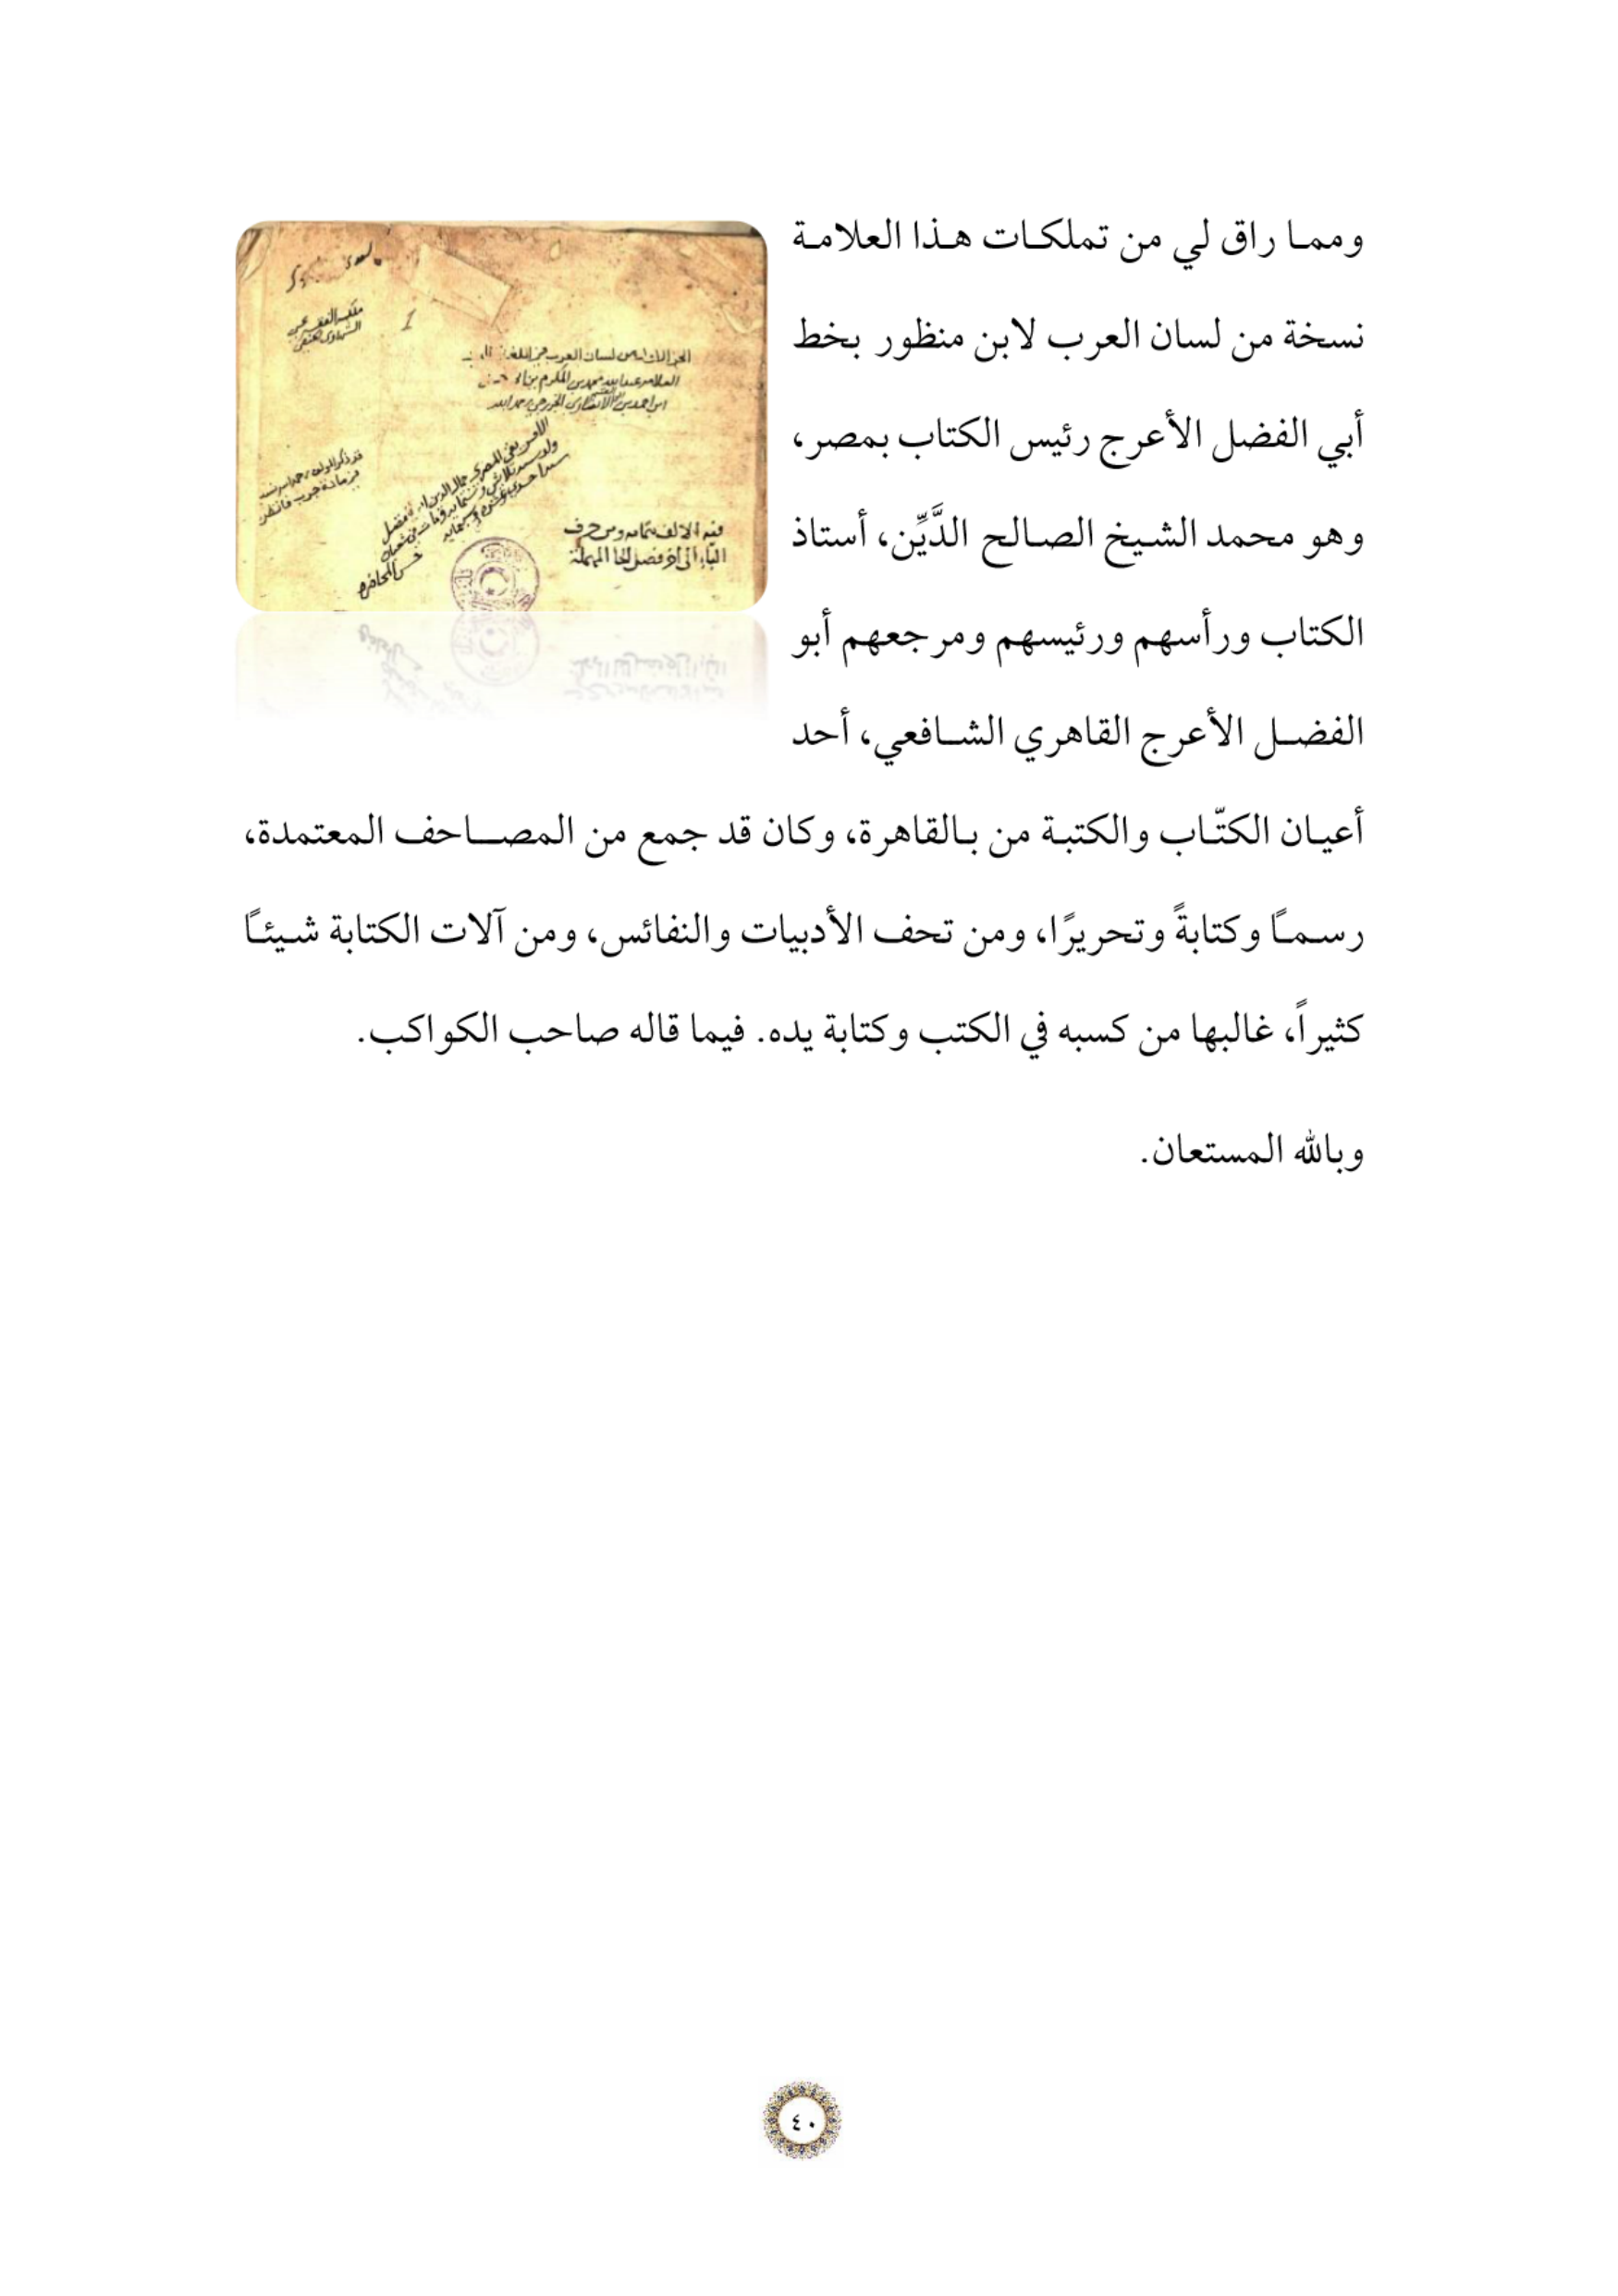 ومما راق لي من تملكات هذا العلامة
نسخة من لسان العرب لابن منظور بخط
أبي الفضل الأعرج رئيس الكتاب بمصر،
وهو محمد الشيخ الصالح الدَّيِّن، أستاذ
الكتاب ورأسهم ورئيسهم ومرجعهم أبو
الفضل الأعرج القاهري الشافعي، أحد
أعيان الكتّاب والكتبة من بالقاهرة، وكان قد جمع من المصاحف المعتمدة،
رسمًا وكتابةً وتحريرًا، ومن تحف الأدبيات والنفائس، ومن آلات الكتابة شيئًا
كثيراً، غالبها من كسبه في الكتب وكتابة يده. فيما قاله صاحب الكواكب.
وبالله المستعان.
من لسان العرب في اللغة
محمد بن المكرم
فيه الالف بتمامه ومن حرف
الباء الى اخر فصل الحا المهملة
٤٠